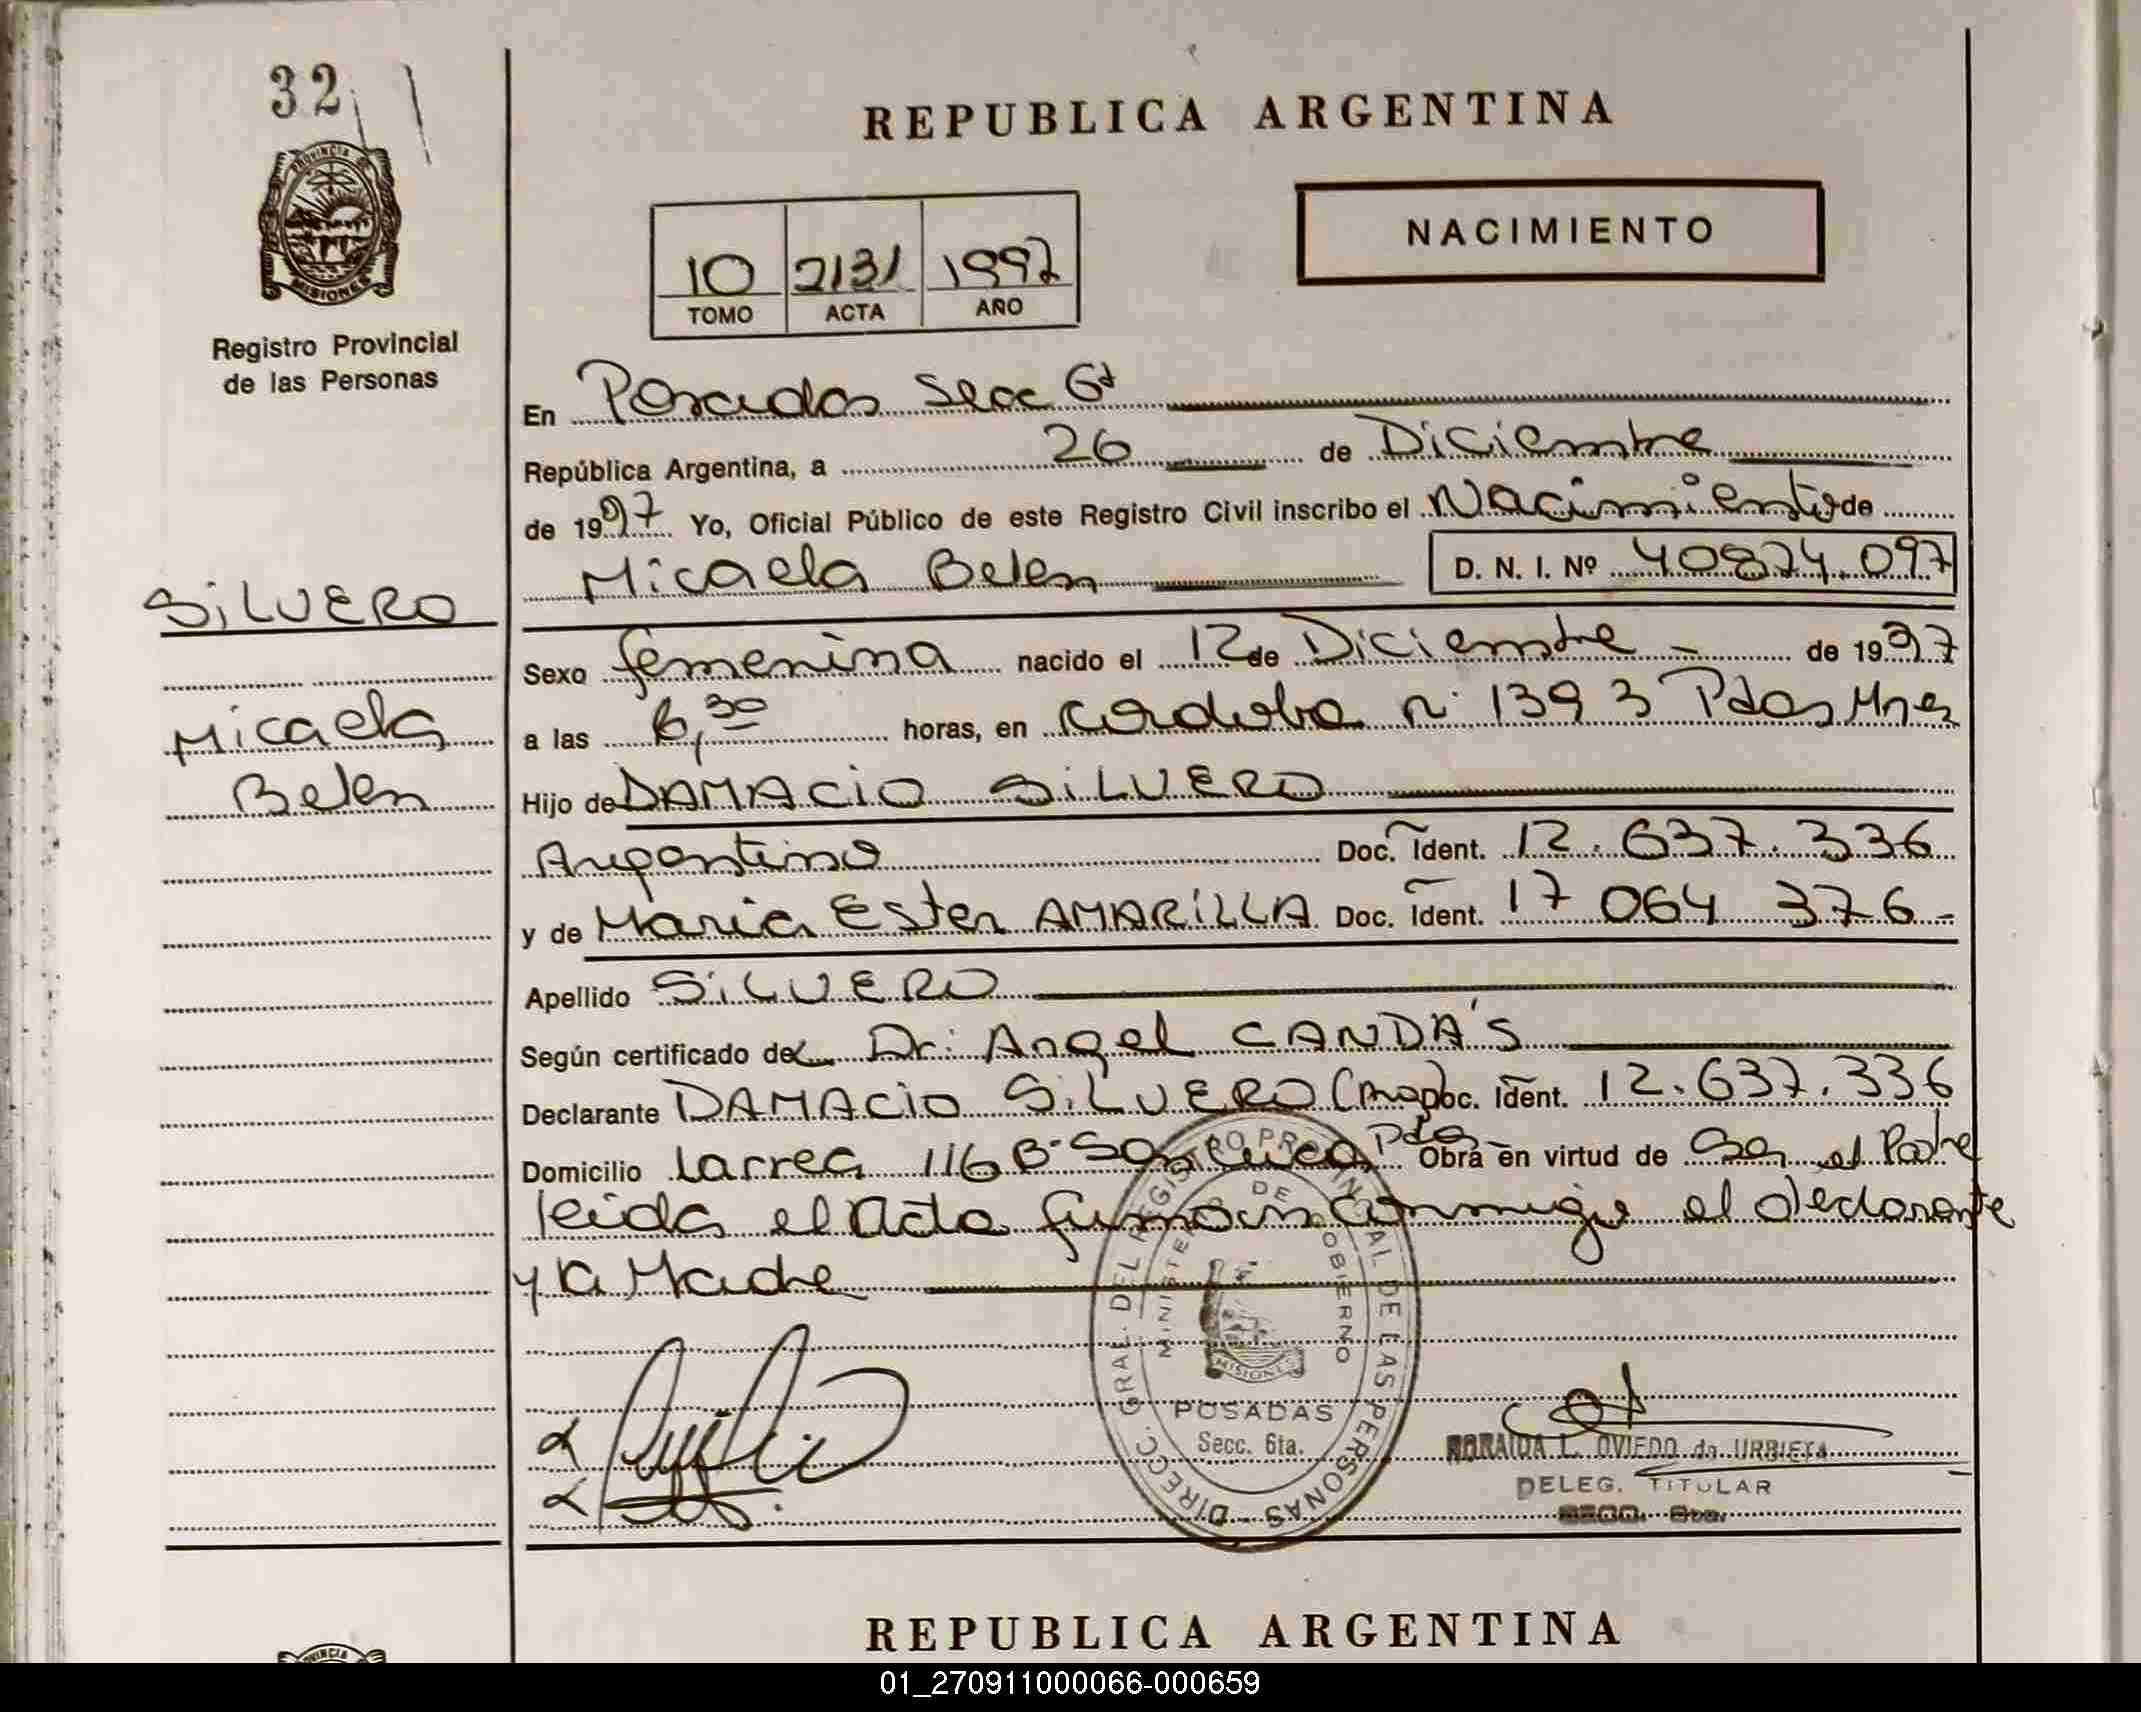 32
PROVINCIA DE
MISIONES
Registro Provincial
de las Personas
SILVERO
Micaela
Belen
REPUBLICA ARGENTINA
10 2131 1997
TOMO ACTA AÑO
NACIMIENTO
En Posadas Secc 6ª
República Argentina, a 26 de Diciembre
de 1997 Yo, Oficial Público de este Registro Civil inscribo el Nacimiento de
Micaela Belen D. N. I. Nº 40874.097
Sexo femenina nacido el 12 de Diciembre - de 1997
a las 6,30 horas, en Cordoba nº 1393 Pdas Mnes
Hijo de DAMACIO SILVERO
Argentino Doc. Ident. 12.637.336
y de Maria Ester AMARILLA Doc. Ident. 17 064 376 -
Apellido SILVERO
Según certificado del Dr: Angel CANDA'S
Declarante DAMACIO SILVERO Doc. Ident. 12.637.336
Domicilio Larrea 116 Bº San Pdas Obra en virtud de Ser el Padre
leida el acta firman conmigo el declarante
y la Madre
DIRECC. GRAL. DEL REGISTRO PROVINCIAL DE LAS PERSONAS
MINISTERIO DE GOBIERNO
MISIONES
POSADAS
Secc. 6ta.
L. OVIEDO de URBIETA
DELEG. TITULAR
SECC. 6ta.
REPUBLICA ARGENTINA
01_270911000066-000659